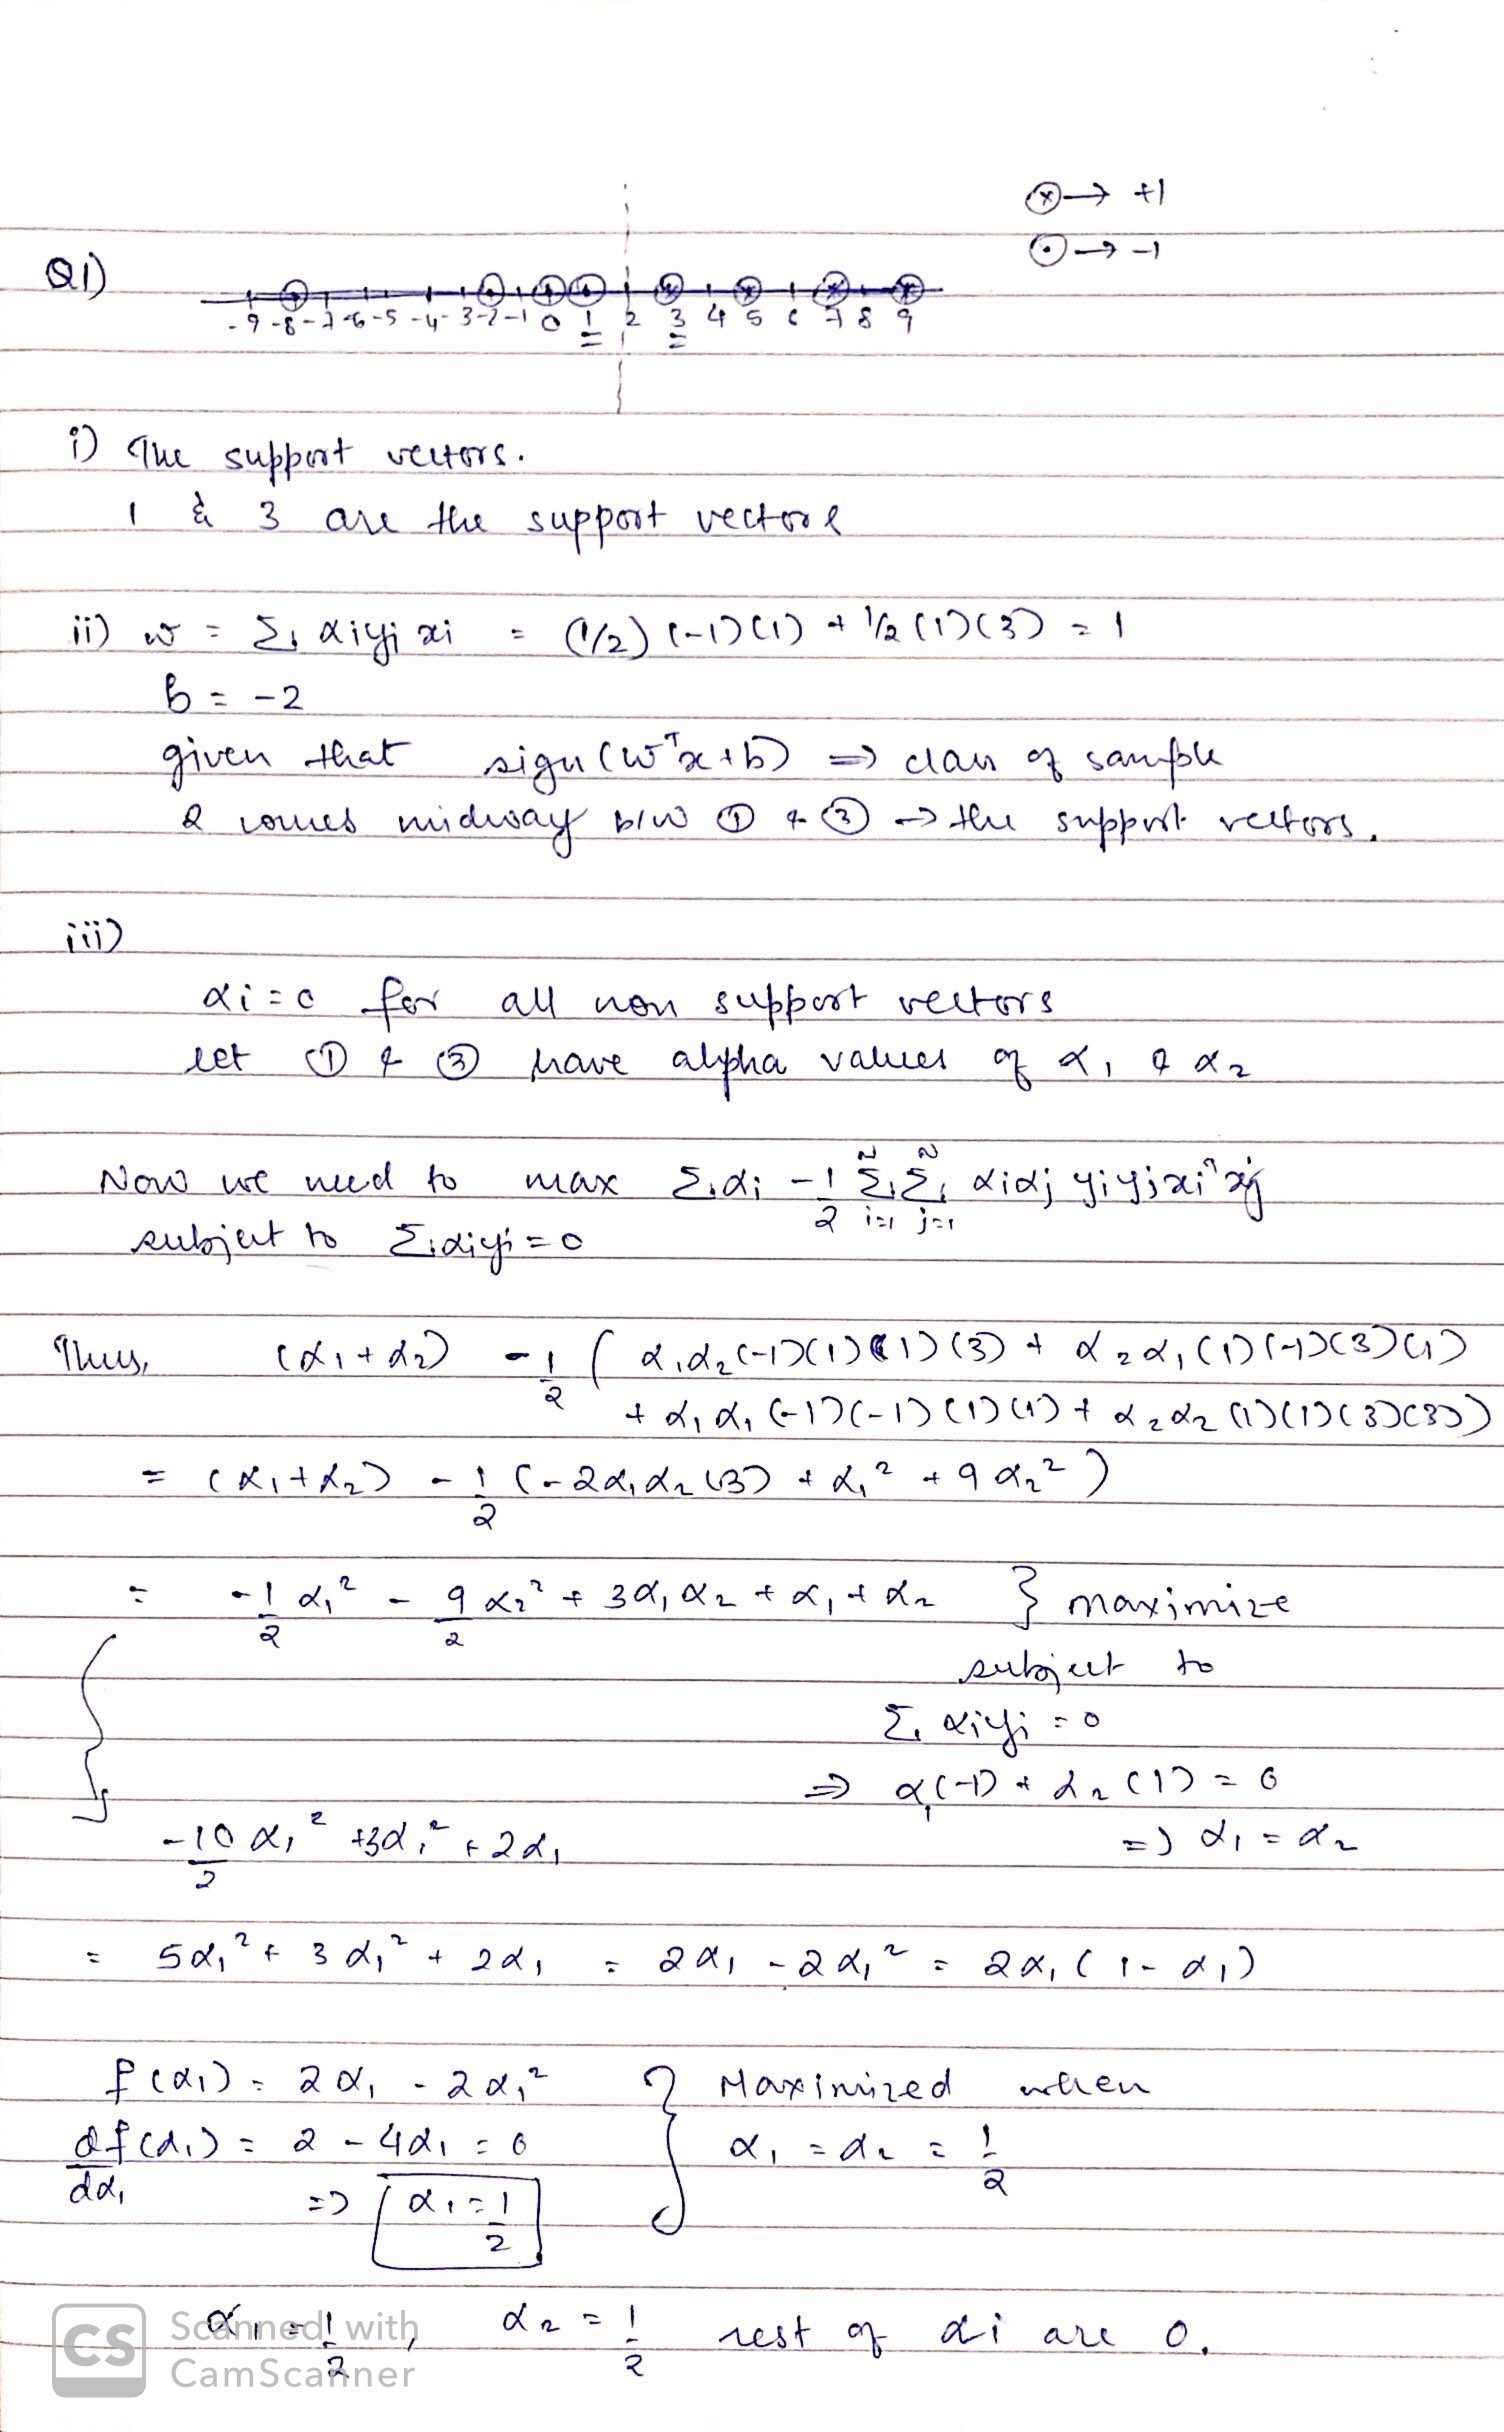 ⊗→ +1
⊙→ -1
Q1)
-9 -8 -7 -6 -5 -4 -3 -2 -1 0 1 2 3 4 5 6 7 8 9
i) The support vectors.
1 & 3 are the support vectors
ii) w = Σi αiyi xi = (1/2) (-1)(1) + 1/2 (1)(3) = 1
b = -2
given that sign (wᵀx+b) ⇒ class of sample
2 comes midway b/w ① & ③ → the support vectors.
iii)
αi=0 for all non support vectors
let ① & ③ have alpha values of α₁ & α₂
Now we need to max Σiαi - 1/2 Σ(i=1 to N) Σ(j=1 to N) αiαj yiyjxiᵀxj
subject to Σiαiyi = 0
Thus, (α₁+α₂) - 1/2 ( α₁α₂(-1)(1)(1)(3) + α₂α₁(1)(-1)(3)(1)
+ α₁α₁(-1)(-1)(1)(1) + α₂α₂(1)(1)(3)(3))
= (α₁+α₂) - 1/2 (-2α₁α₂(3) + α₁² + 9α₂²)
= -1/2 α₁² - 9/2 α₂² + 3α₁α₂ + α₁ + α₂ } maximize
subject to
Σi αiyi = 0
⇒ α₁(-1) + α₂(1) = 0
⇒ α₁ = α₂
-10/2 α₁² +3α₁² + 2α₁
= 5α₁² + 3α₁² + 2α₁ = 2α₁ - 2α₁² = 2α₁(1-α₁)
f(α₁) = 2α₁ - 2α₁² } Maximized when
df(α₁)/dα₁ = 2 - 4α₁ = 0 α₁ = α₂ = 1/2
⇒ α₁ = 1/2
α₁ = 1/2, α₂ = 1/2 rest of αi are 0.
CS Scanned with
CamScanner